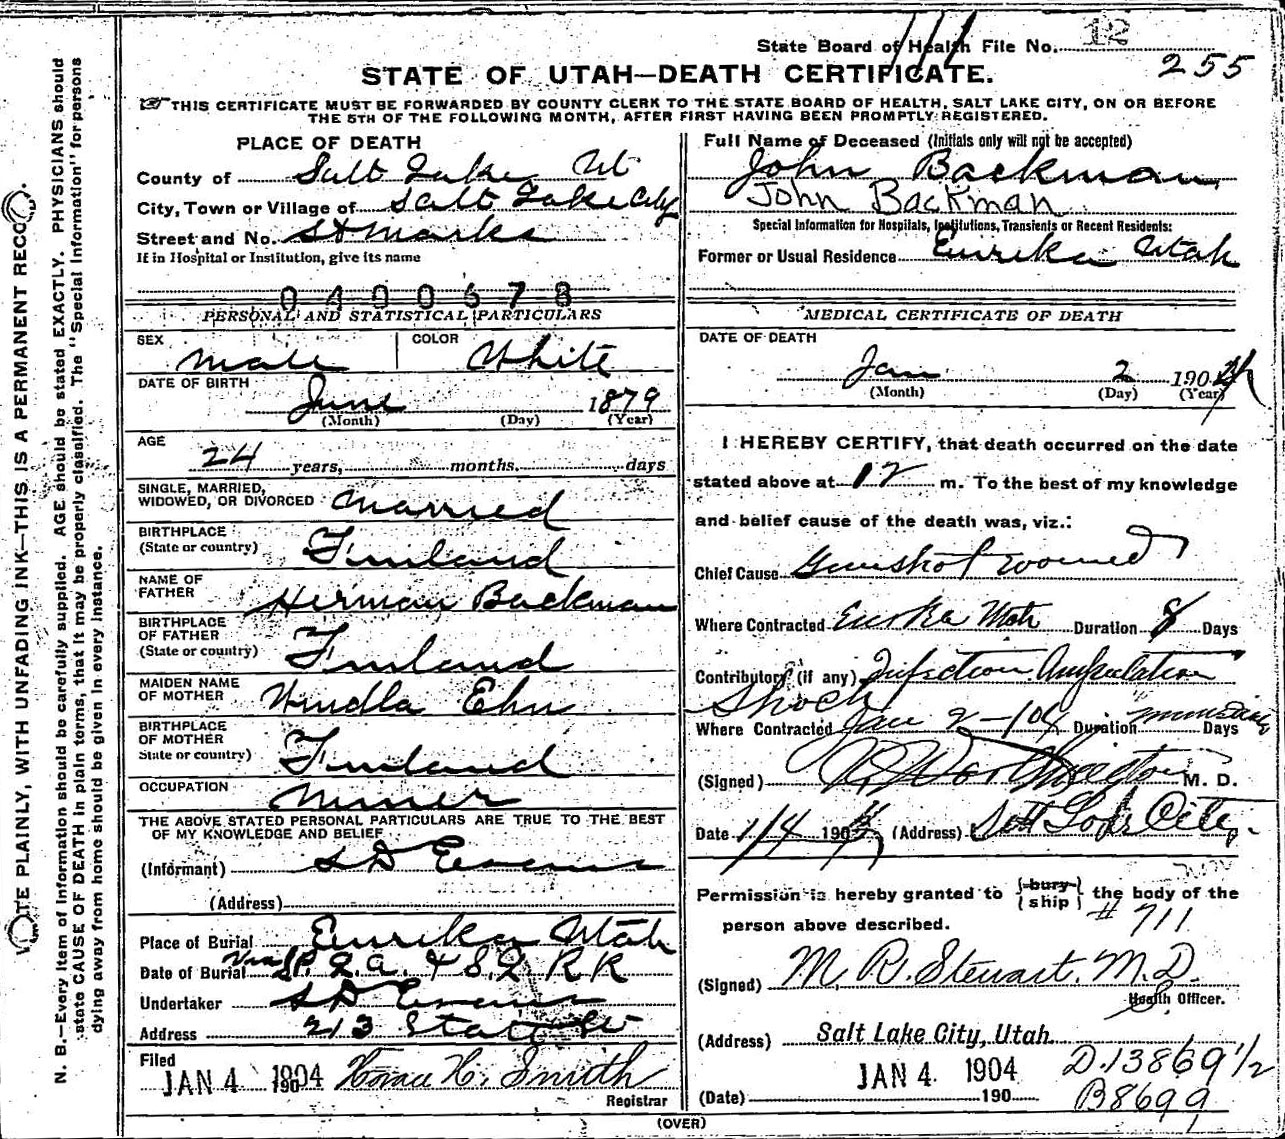 State Board of Health File No. 12
255
STATE OF UTAH—DEATH CERTIFICATE.
THIS CERTIFICATE MUST BE FORWARDED BY COUNTY CLERK TO THE STATE BOARD OF HEALTH, SALT LAKE CITY, ON OR BEFORE
THE 5TH OF THE FOLLOWING MONTH, AFTER FIRST HAVING BEEN PROMPTLY REGISTERED.
PLACE OF DEATH
County of Salt Lake Ut
City, Town or Village of Salt Lake City
Street and No. St Marks
If in Hospital or Institution, give its name
0400678
PERSONAL AND STATISTICAL PARTICULARS
SEX Male COLOR White
DATE OF BIRTH
June 1879
(Month) (Day) (Year)
AGE
24 years, months. days
SINGLE, MARRIED,
WIDOWED, OR DIVORCED Married
BIRTHPLACE
(State or country) Finland
NAME OF
FATHER Herman Backman
BIRTHPLACE
OF FATHER
(State or country) Finland
MAIDEN NAME
OF MOTHER Ehn
BIRTHPLACE
OF MOTHER
State or country) Finland
OCCUPATION Miner
THE ABOVE STATED PERSONAL PARTICULARS ARE TRUE TO THE BEST
OF MY KNOWLEDGE AND BELIEF
(Informant) S D Evans
(Address)
Place of Burial Eureka Utah
Date of Burial R R
Undertaker S D Evans
Address 213 State St
Filed
JAN 4 1904 H. Smith
190
Registrar
Full Name of Deceased (Initials only will not be accepted)
John Backman
John Backman
Special Information for Hospitals, Institutions, Transients or Recent Residents:
Former or Usual Residence Eureka Utah
MEDICAL CERTIFICATE OF DEATH
DATE OF DEATH
Jan 2 1904
(Month) (Day) (Year)
I HEREBY CERTIFY, that death occurred on the date
stated above at 12 m. To the best of my knowledge
and belief cause of the death was, viz.:
Chief Cause Gunshot wound
Where Contracted Eureka Utah Duration 8 Days
Contributory (if any) Infection Amputation
Shock
Where Contracted Jan 2-104 Duration Days
(Signed) Worthington M. D.
Date 1/4 1904 (Address) Salt Lake City.
Permission is hereby granted to {bury ship} the body of the
person above described. #711
(Signed) M. R. Stewart. M.D.
Health Officer.
(Address) Salt Lake City, Utah
JAN 4 1904
(Date) 190
D.13869 1/2
B8699
(OVER)
WRITE PLAINLY, WITH UNFADING INK—THIS IS A PERMANENT RECORD.
N. B.—Every item of information should be carefully supplied. AGE should be stated EXACTLY. PHYSICIANS should
state CAUSE OF DEATH in plain terms, that it may be properly classified. The "Special Information" for persons
dying away from home should be given in every instance.